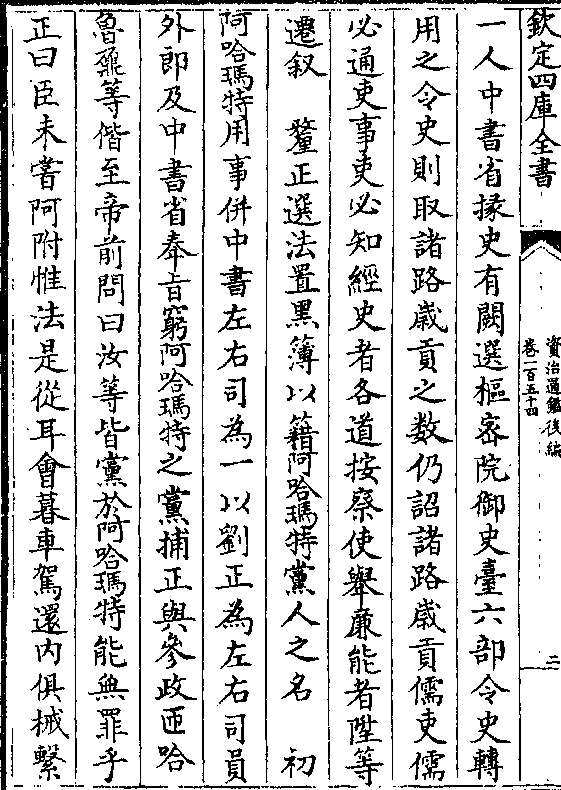 欽定四庫全書
資治通鑑後編
卷一百五十四
二
一人中書省掾史有闕選樞密院御史臺六部令史轉
用之令史則取諸路歲貢之數仍詔諸路歲貢儒吏儒
必通吏事吏必知經史者各道按察使舉廉能者陞等
遷叙　釐正選法置黑簿以籍阿哈瑪特黨人之名　初
阿哈瑪特用事併中書左右司為一以劉正為左右司員
外郎及中書省奉旨窮阿哈瑪特之黨捕正與參政匝哈
魯鼐等偕至帝前問曰汝等皆黨於阿哈瑪特能無罪乎
正曰臣未嘗阿附惟法是從耳會暮車駕還内俱械繫